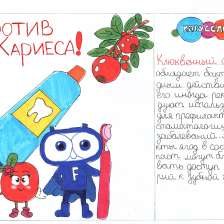 РОТИВ
КАРИЕСА!
F
Клюквенный с
обладает бакт
дым действи
его иногда рек
дуют использ
для профилакт
стоматологич
заболеваний.
кты ягод в со
может
вать доступ
рий к зубной э